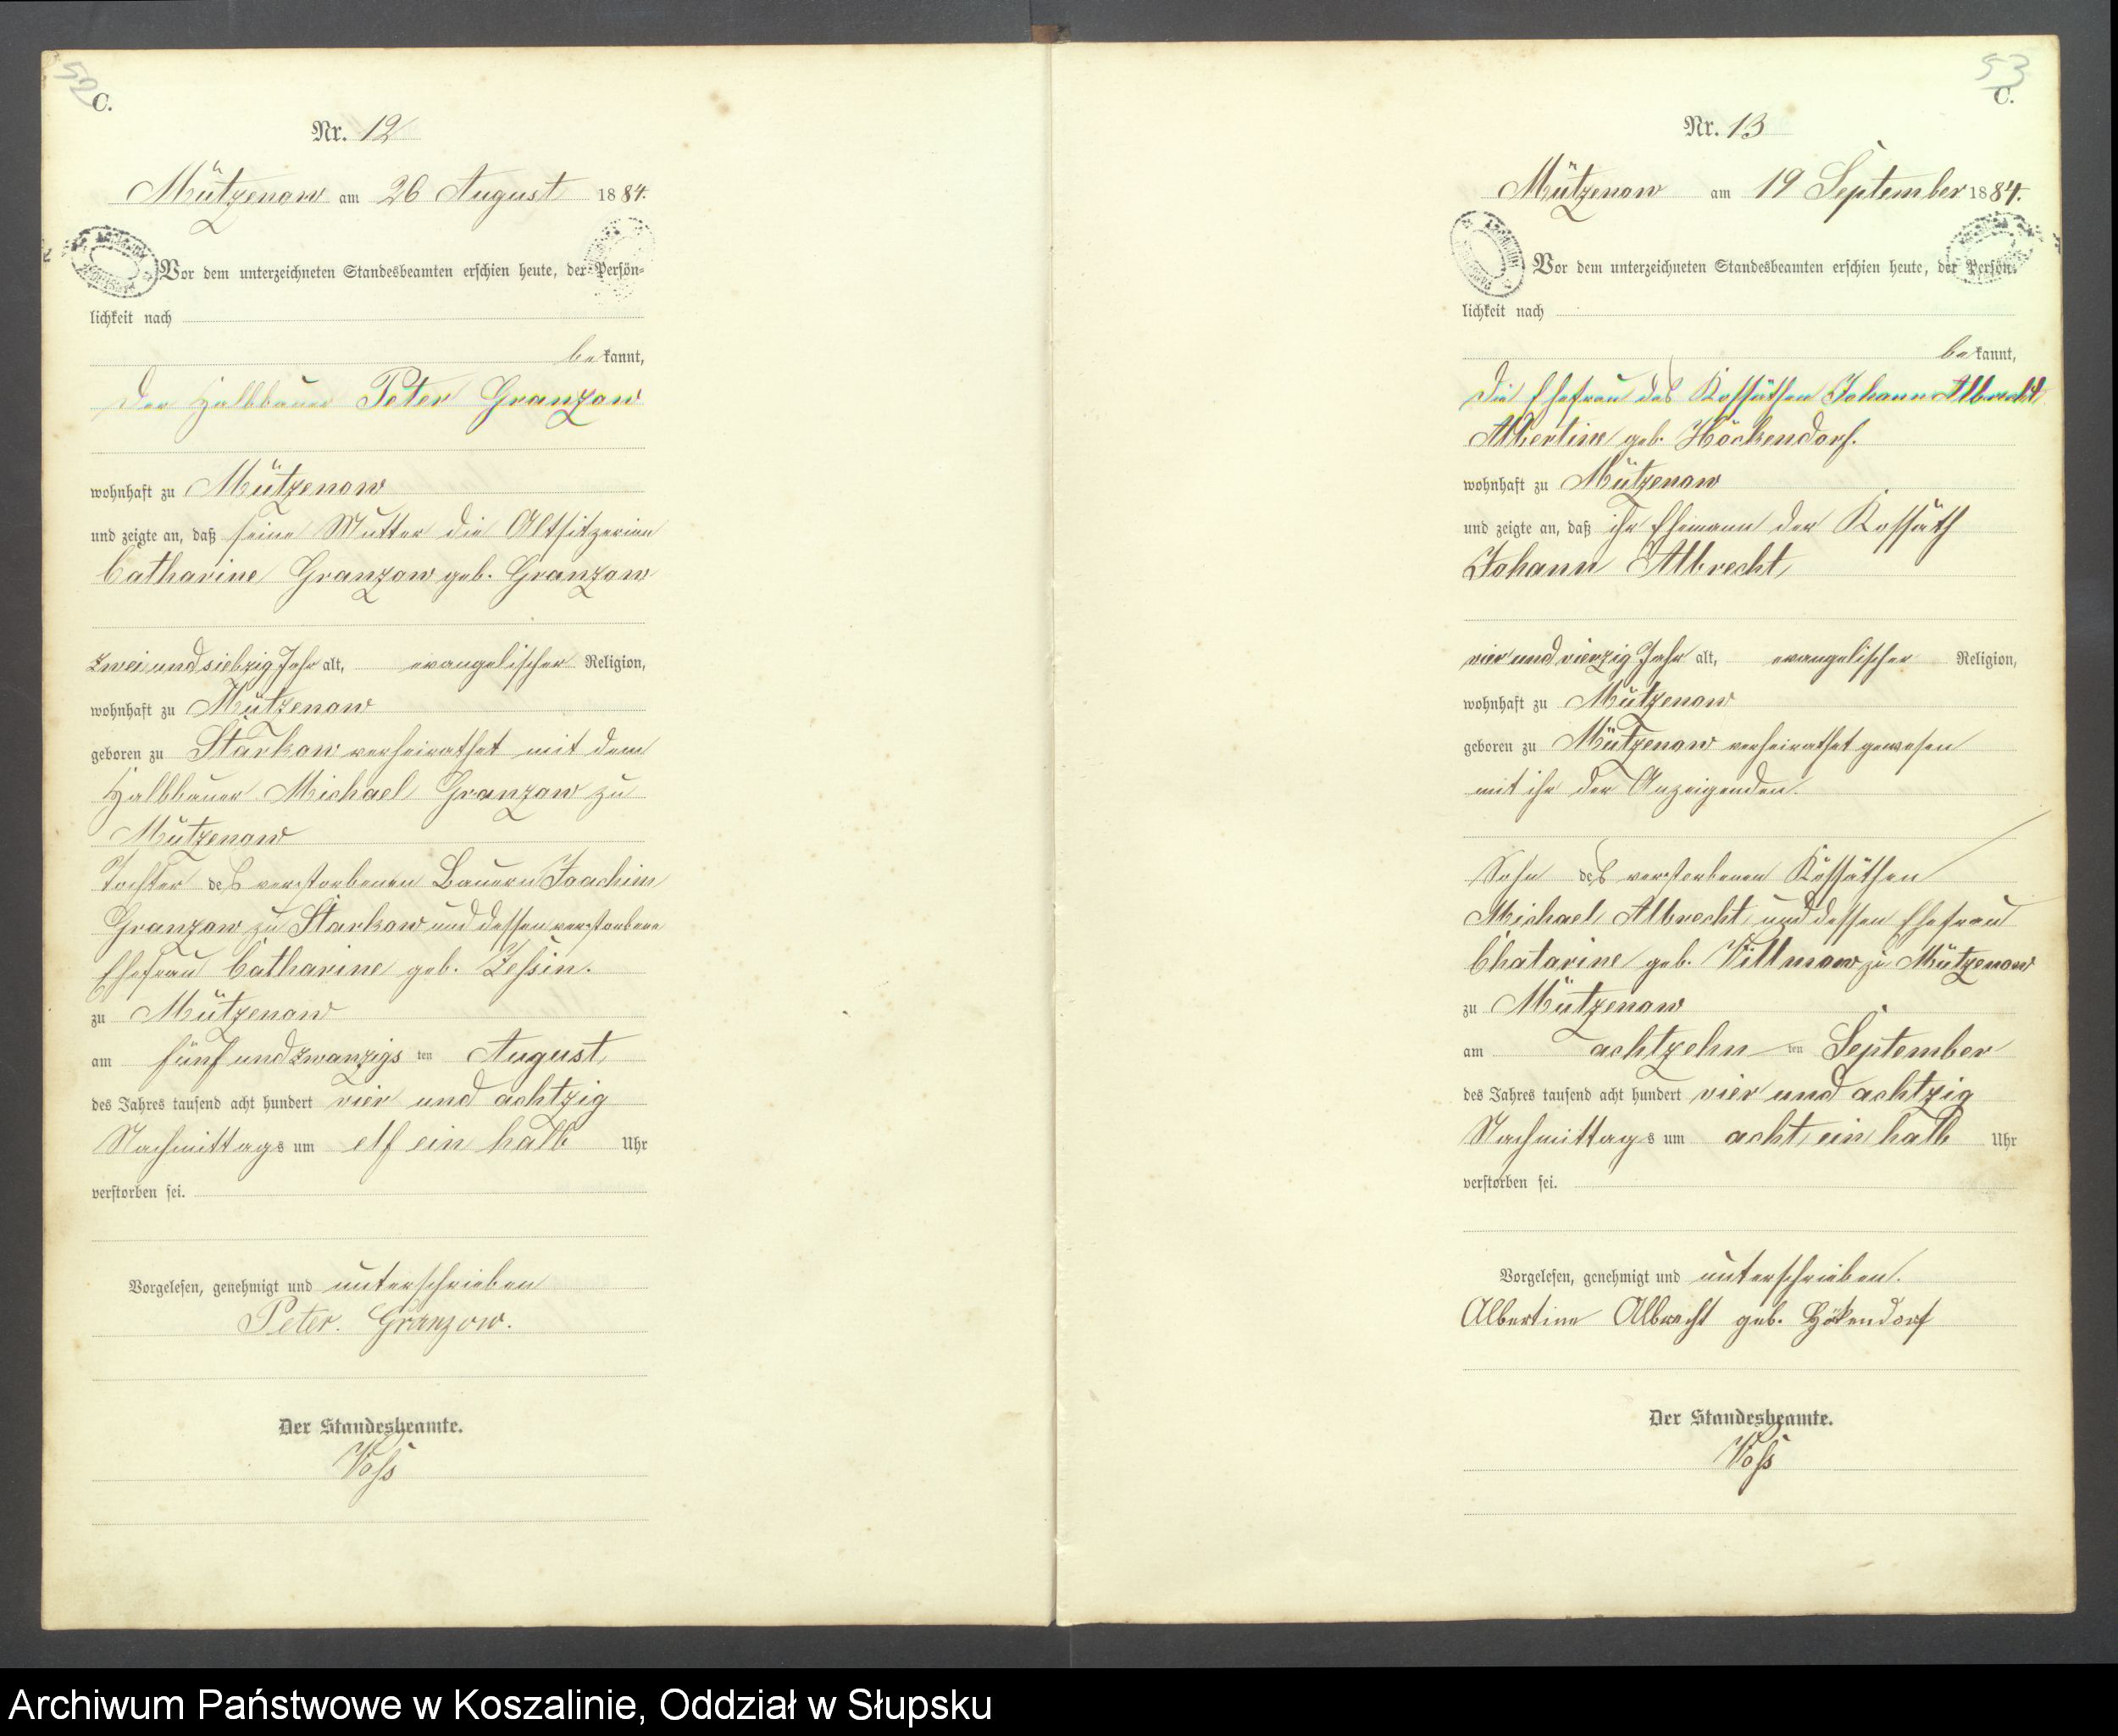 52
C.
Nr. 12
Mützenow am 26 August 1884.
Vor dem unterzeichneten Standesbeamten erschien heute, der Persön-
lichkeit nach
bekannt,
der Halbbauer Peter Granzow
wohnhaft zu Mützenow
und zeigte an, daß seine Mutter die Altsitzerinn
Catharine Granzow geb. Granzow
zwei und siebzig Jahr alt, evangelischer Religion,
wohnhaft zu Mützenow
geboren zu Starkow verheirathet mit dem
Halbbauer Michael Granzow zu
Mützenow
Tochter des verstorbenen Bauern Joachim
Granzow zu Starkow und dessen verstorbene
Ehefrau Catharine geb. Zessin.
zu Mützenow
am fünf und zwanzigs ten August
des Jahres tausend acht hundert vier und achtzig
Nachmittags um elf ein halb Uhr
verstorben sei.
Vorgelesen, genehmigt und unterschrieben
Peter. Granzow.
Der Standesbeamte.
Voß
53
C.
Nr. 13
Mützenow am 19 September 1884.
Vor dem unterzeichneten Standesbeamten erschien heute, der Persön-
lichkeit nach
bekannt,
die Ehefrau des Kossäthen Johann Albrecht
Albertine geb. Höckendorf.
wohnhaft zu Mützenow
und zeigte an, daß ihr Ehemann der Kossäth
Johann Albrecht,
vier und vierzig Jahr alt, evangelischer Religion,
wohnhaft zu Mützenow
geboren zu Mützenow verheirathet gewesen
mit ihr der Anzeigenden.
Sohn des verstorbenen Kossäthen
Michael Albrecht, und dessen Ehefrau
Chatarine geb. Villmow zu Mützenow
zu Mützenow
am achtzehn ten September
des Jahres tausend acht hundert vier und achtzig
Nachmittags um acht ein halb Uhr
verstorben sei.
Vorgelesen, genehmigt und unterschrieben.
Albertine Albrecht geb. Hökendorf
Der Standesbeamte.
Voß
Archiwum Państwowe w Koszalinie, Oddział w Słupsku